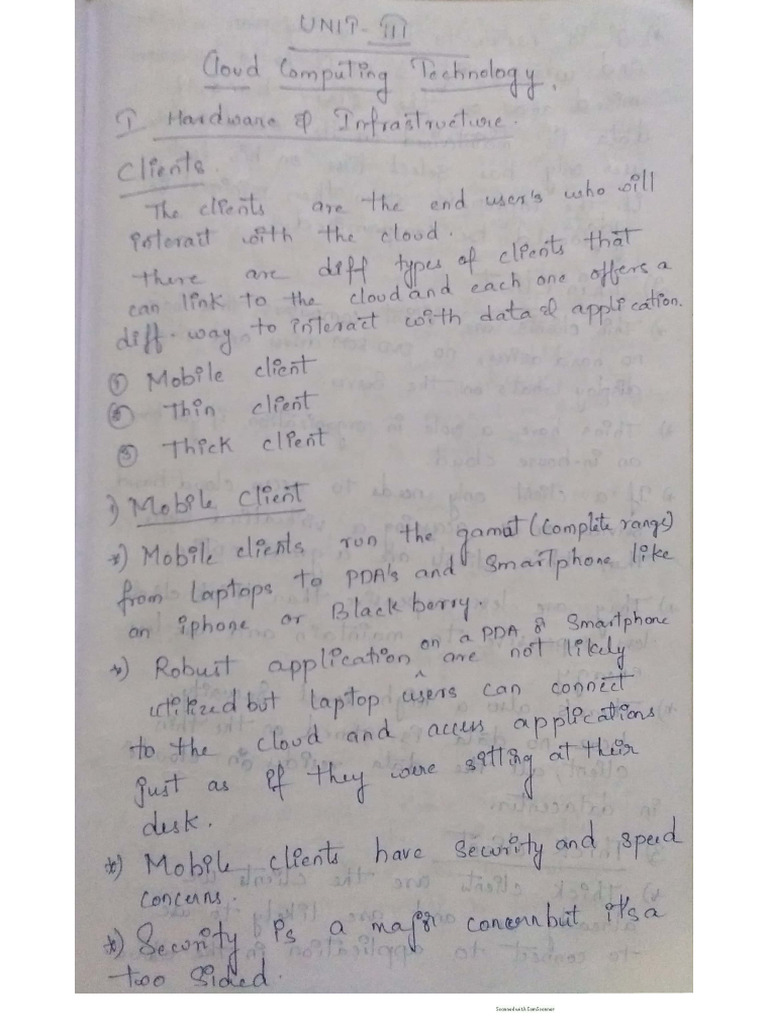 UNIT-III
Cloud Computing Technology.
I Hardware & Infrastructure.
Clients.
The clients are the end user's who will
interact with the cloud.
there are diff types of clients that
can link to the cloud and each one offers a
diff. way to interact with data & application.
① Mobile client
② Thin client
③ Thick client
1) Mobile Client
*) Mobile clients run the gamut (complete range)
from Laptops to PDA's and Smartphone like
an iphone or Blackberry.
on a PDA & Smartphone
*) Robust application ^ are not likely
utilized but laptop users can connect
to the cloud and access applications
just as if they were sitting at their
desk.
*) Mobile clients have security and speed
concerns.
*) Security is a major concern but it's a
two sided.
Scanned with CamScanner